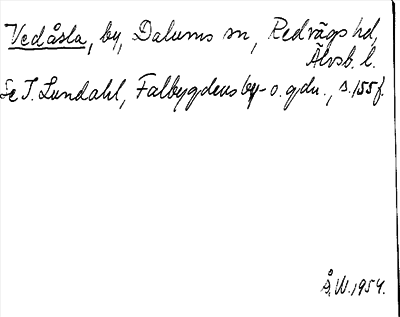 Vedåsla, by, Dalums sn, Redvägs hd,
Älvsb. l.
Se I. Lundahl, Falbygdens by- o. gdn., s. 155 f.
Å.W. 1954.